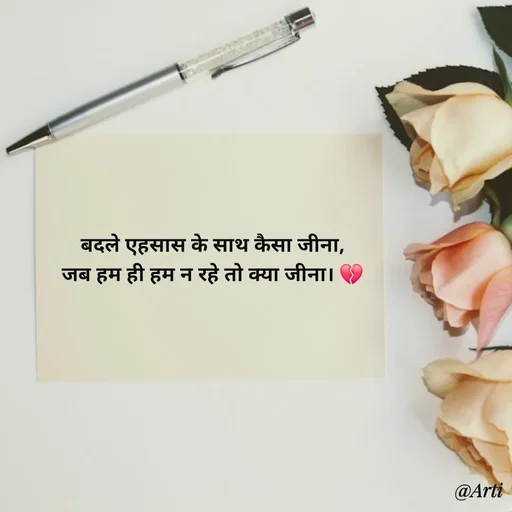 बदले एहसास के साथ कैसा जीना,
जब हम ही हम न रहे तो क्या जीना। 💔
@Arti